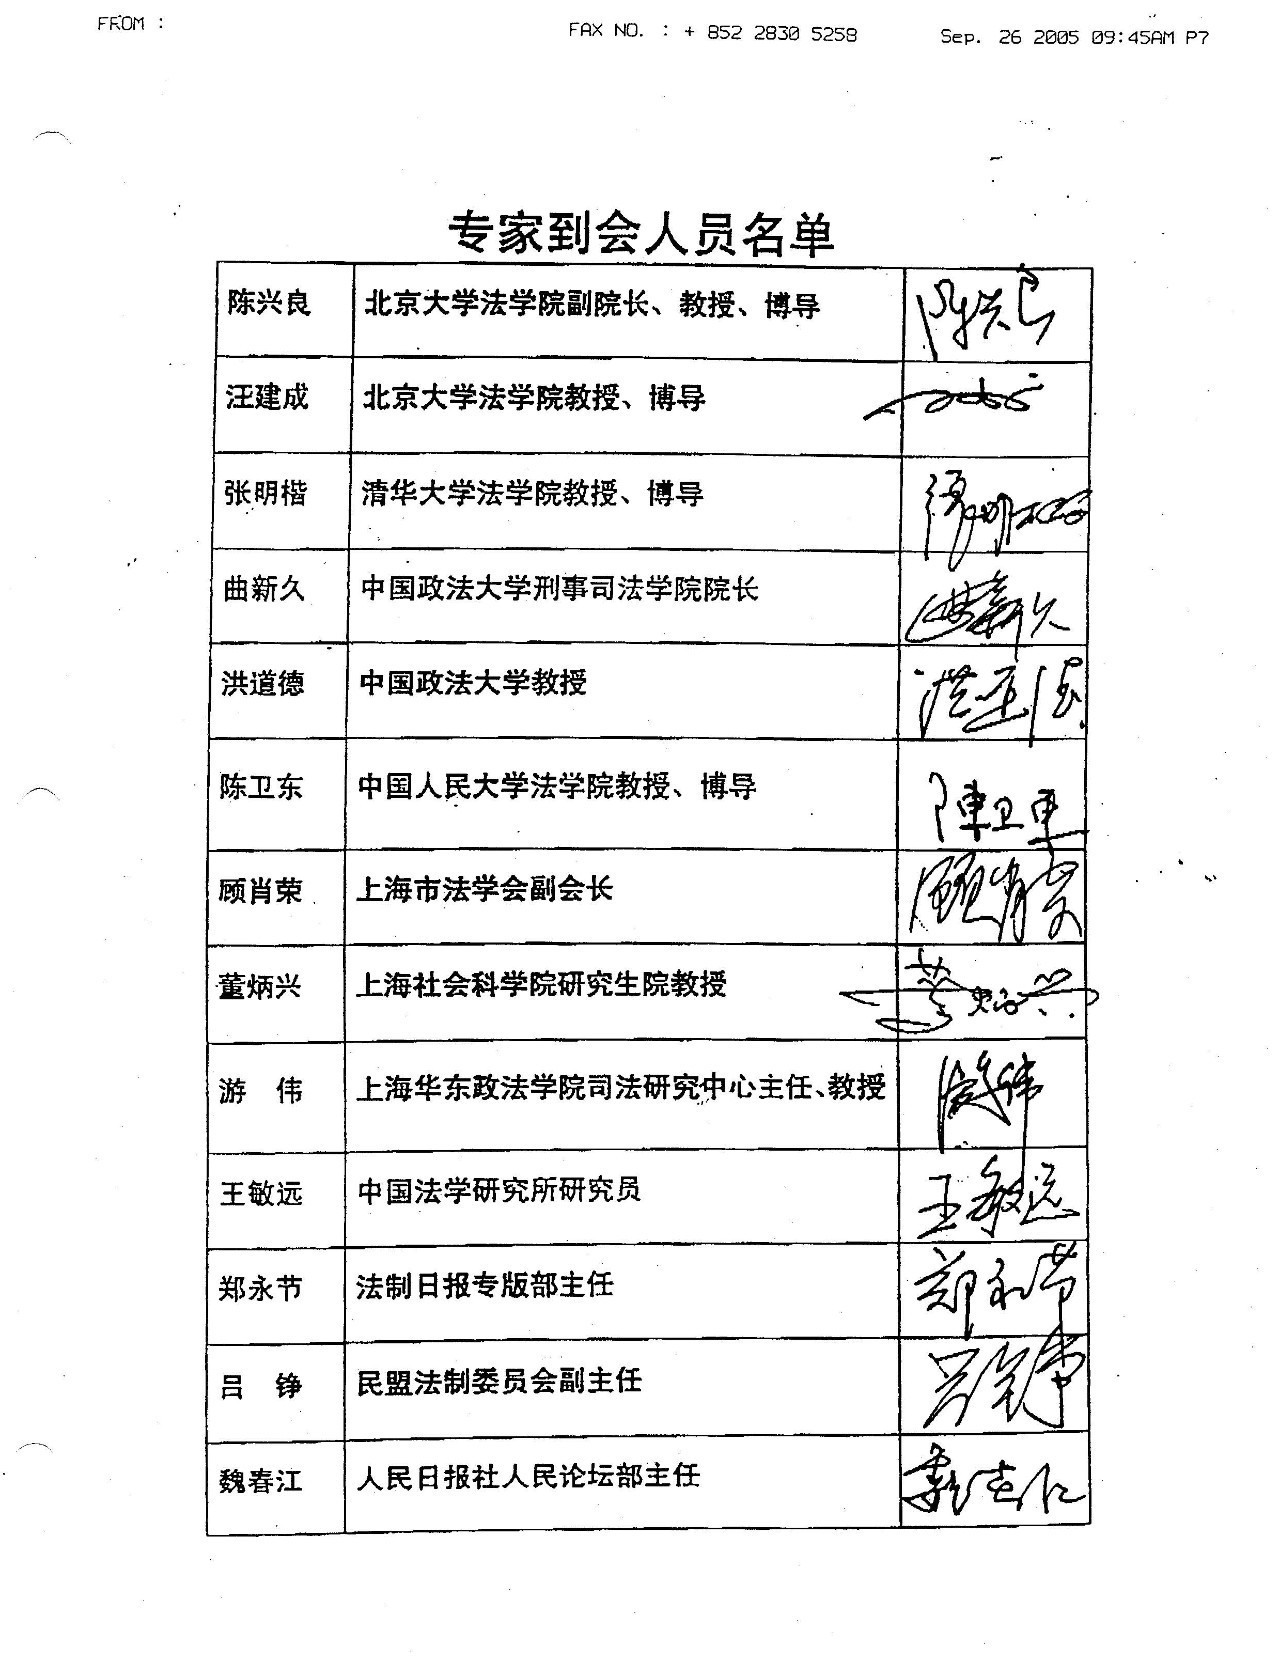 FROM :
FAX NO. : + 852 2830 5258
Sep. 26 2005 09:45AM P7
专家到会人员名单
陈兴良 北京大学法学院副院长、教授、博导 陈兴良
汪建成 北京大学法学院教授、博导
张明楷 清华大学法学院教授、博导 张明楷
曲新久 中国政法大学刑事司法学院院长 曲新久
洪道德 中国政法大学教授 洪道德
陈卫东 中国人民大学法学院教授、博导 陳卫東
顾肖荣 上海市法学会副会长 顾肖荣
董炳兴 上海社会科学院研究生院教授 董炳兴
游 伟 上海华东政法学院司法研究中心主任、教授 游伟
王敏远 中国法学研究所研究员 王敏远
郑永节 法制日报专版部主任 郑永节
吕 铮 民盟法制委员会副主任 吕铮
魏春江 人民日报社人民论坛部主任 魏春江